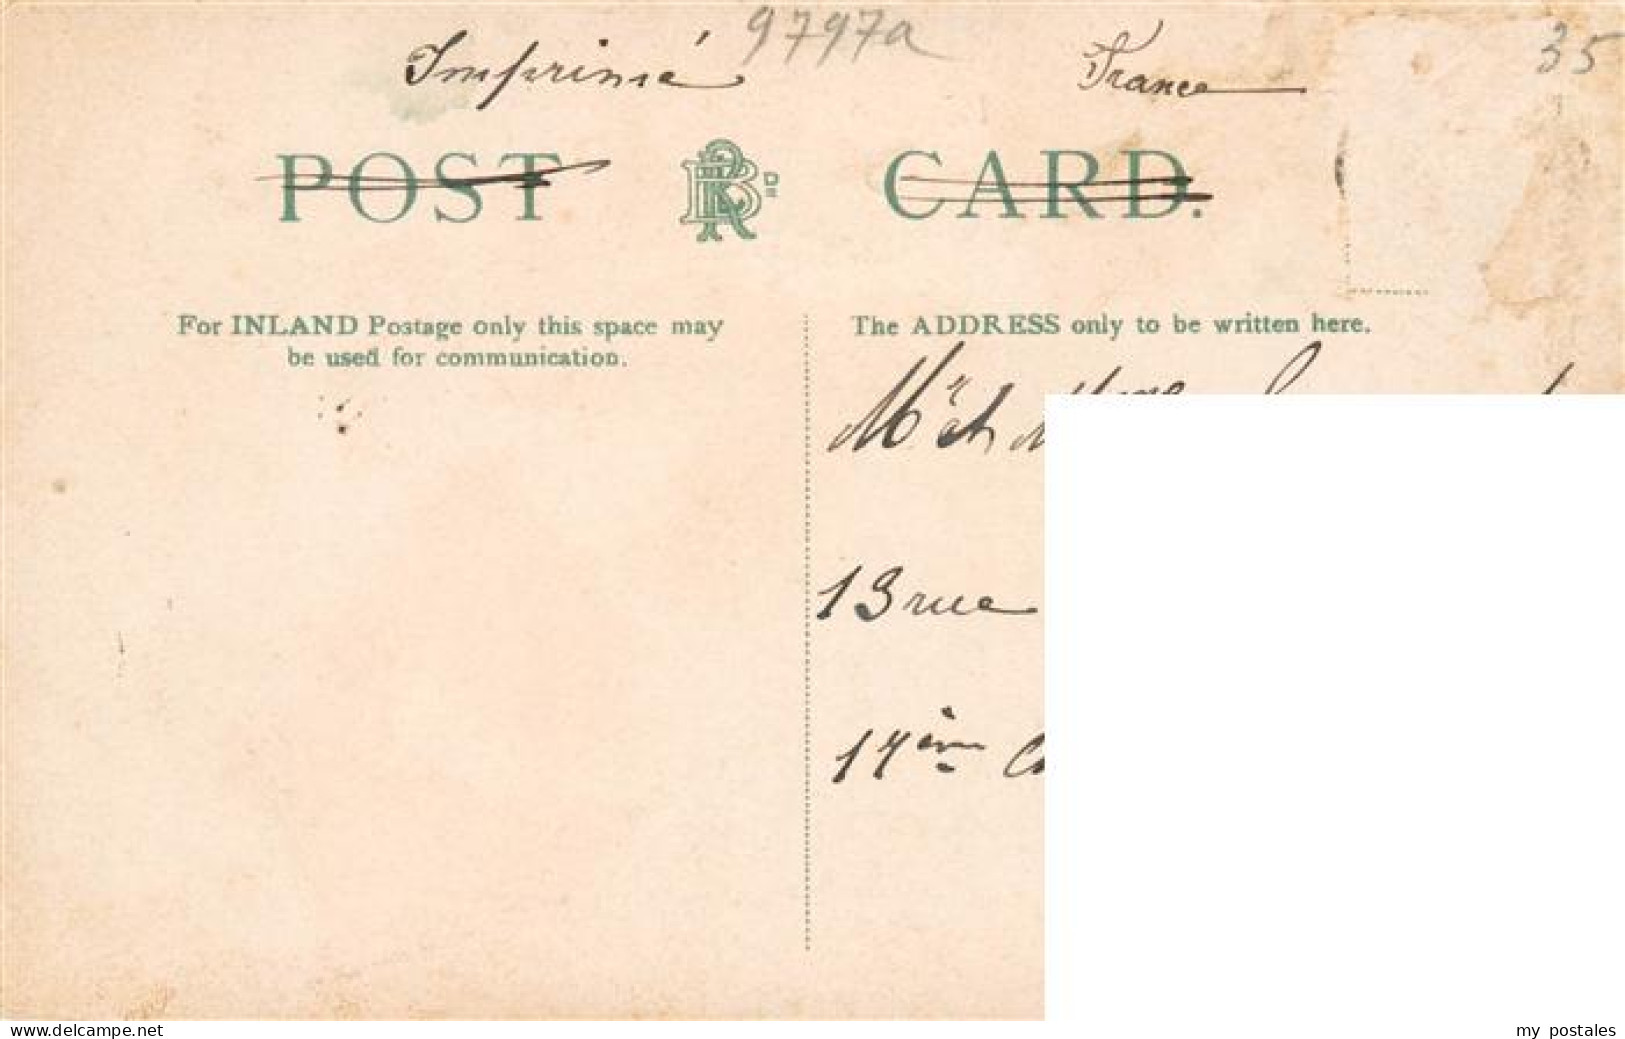 9797a
35
Imprimé France
POST CARD.
For INLAND Postage only this space may
be used for communication.
The ADDRESS only to be written here.
Mr et
13 rue
17ème
www.delcampe.net
my postales